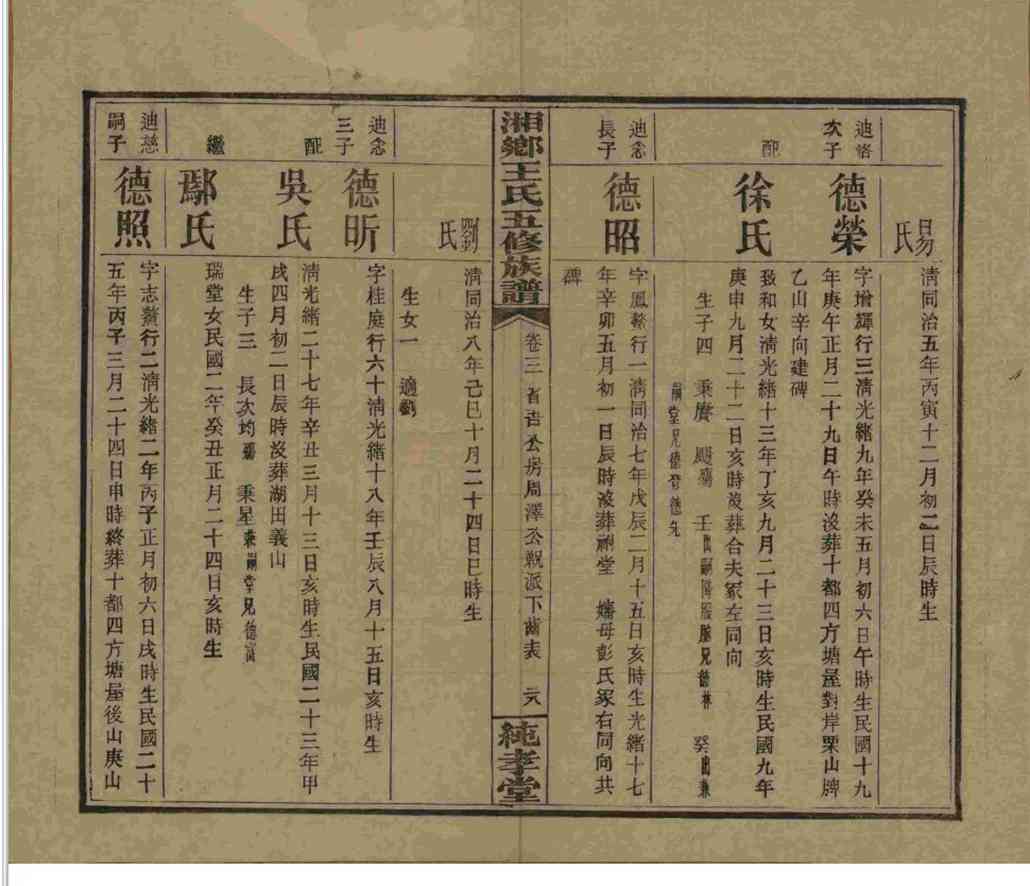 易氏
清同治五年丙寅十二月初二日辰時生
迪詻次子
德榮
字增輝行三清光緒九年癸未五月初六日午時生民國十九
年庚午正月二十九日午時沒葬十都四方塘屋對岸栗山牌
乙山辛向建碑
配
徐氏
致和女清光緒十三年丁亥九月二十三日亥時生民國九年
庚申九月二十二日亥時沒葬合夫冢左同向
生子四 秉賡 颺 壬出嗣 兄德 癸出兼
嗣堂兄德 德先
迪念長子
德昭
字鳳 行一清同治七年戊辰二月十五日亥時生光緒十七
年辛卯五月初一日辰時沒葬祠堂 嬸母彭氏冢右同向共
碑
湘鄉王氏五修族譜
卷三 公房周澤公 派下齒表 六
純孝堂
劉氏
清同治八年己巳十月二十四日巳時生
生女一 適劉
迪念三子
德昕
字桂庭行六十清光緒十八年壬辰八月十五日亥時生
配
吳氏
清光緒二十七年辛丑三月十三日亥時生民國二十三年甲
戌四月初二日辰時沒葬湖田義山
生子三 長次均殤 秉星兼嗣堂兄德
繼
鄢氏
瑞堂女民國二年癸丑正月二十四日亥時生
迪慈嗣子
德照
字志 行二清光緒二年丙子正月初六日戌時生民國二十
五年丙子三月二十四日申時終葬十都四方塘屋後山庚山